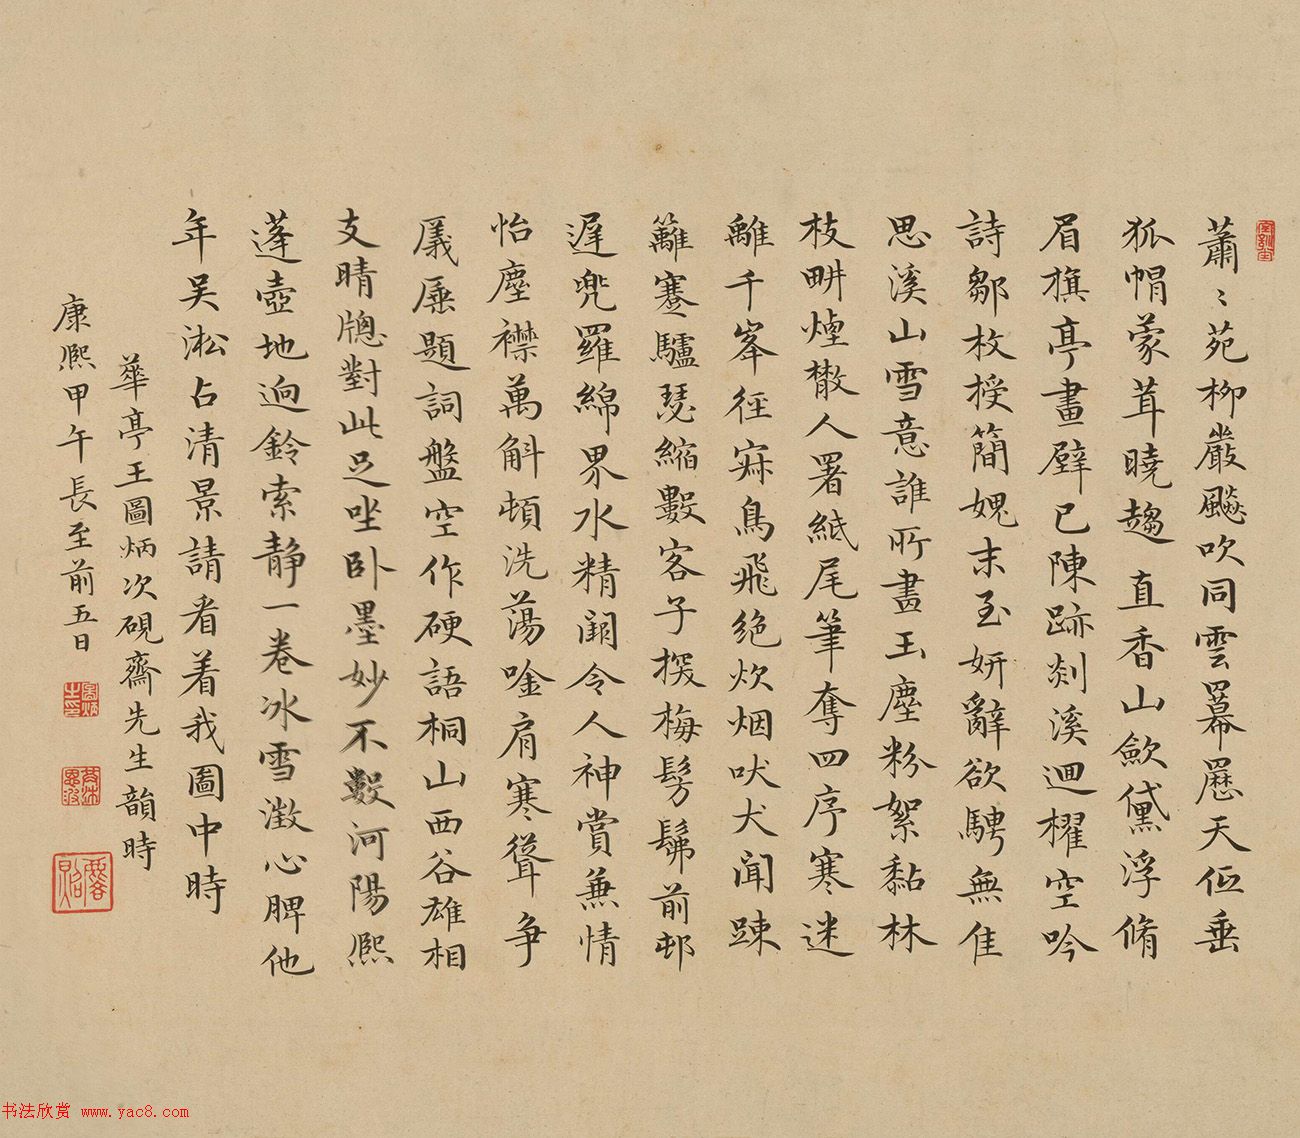 蕭〻苑柳嚴飈吹同雲羃歴天低垂
狐帽蒙茸曉趨直香山歛黛浮脩
眉旗亭畫壁已陳跡剡溪迴櫂空吟
詩鄒枚授簡媿末至妍辭欲騁無隹
思溪山雪意誰所畫玉塵粉絮黏林
枝畊煙散人署紙尾筆奪四序寒迷
離千峯徑寂鳥飛絶炊烟吠犬闻踈
籬蹇驢瑟縮數客子探梅髣髴前邨
遲兜羅綿界水精闕令人神賞兼情
怡塵襟萬斛頓洗蕩唫肩寒聳争
厜㕒題詞盤空作硬語桐山西谷雄相
支晴牕對此足坐卧墨妙不數河陽熙
蓬壺地迥鈴索静一卷冰雪澂心脾他
年吴淞占清景請看着我圖中時
華亭王圖炳次硯齋先生韻時
康熙甲午長至前五日
书法欣赏 www.yac8.com